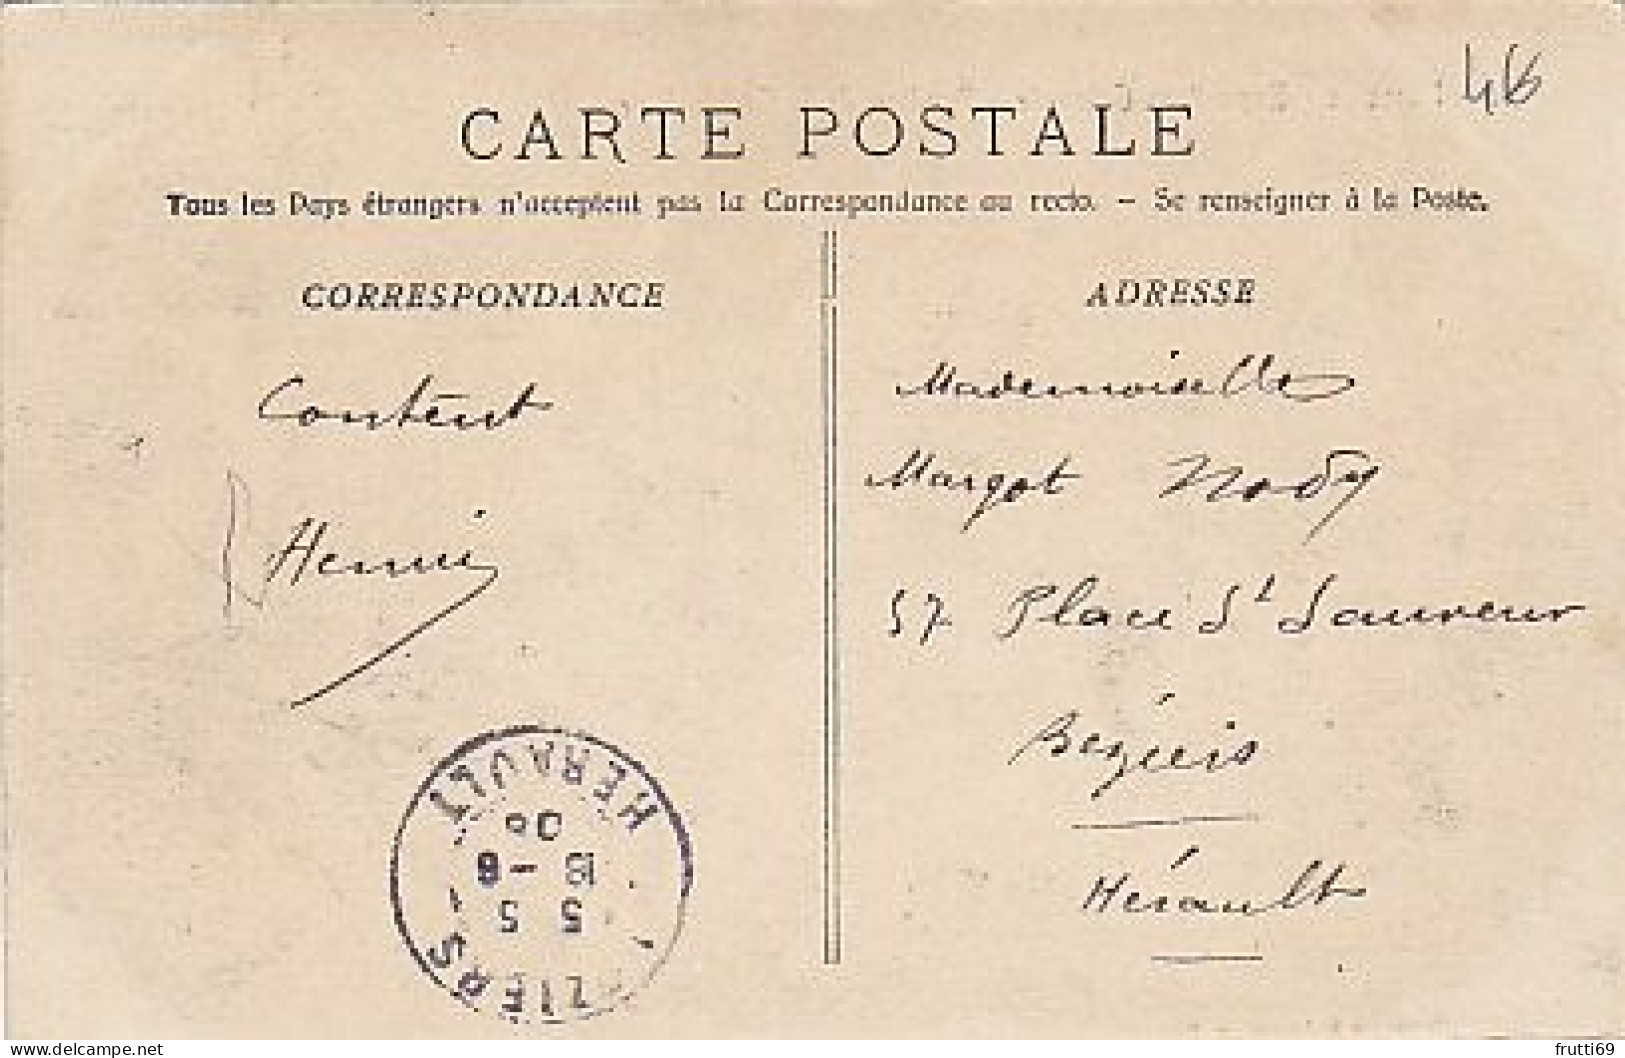 46
CARTE POSTALE
Tous les Pays étrangers n'acceptent pas la Correspondance au recto. — Se renseigner à la Poste.
CORRESPONDANCE
Content
Henri
ADRESSE
Mademoiselle
Margot Nody
57 Place St Sauveur
Béziers
Hérault
ZIERS
5 5
06
HERAULT
www.delcampe.net
frutti69